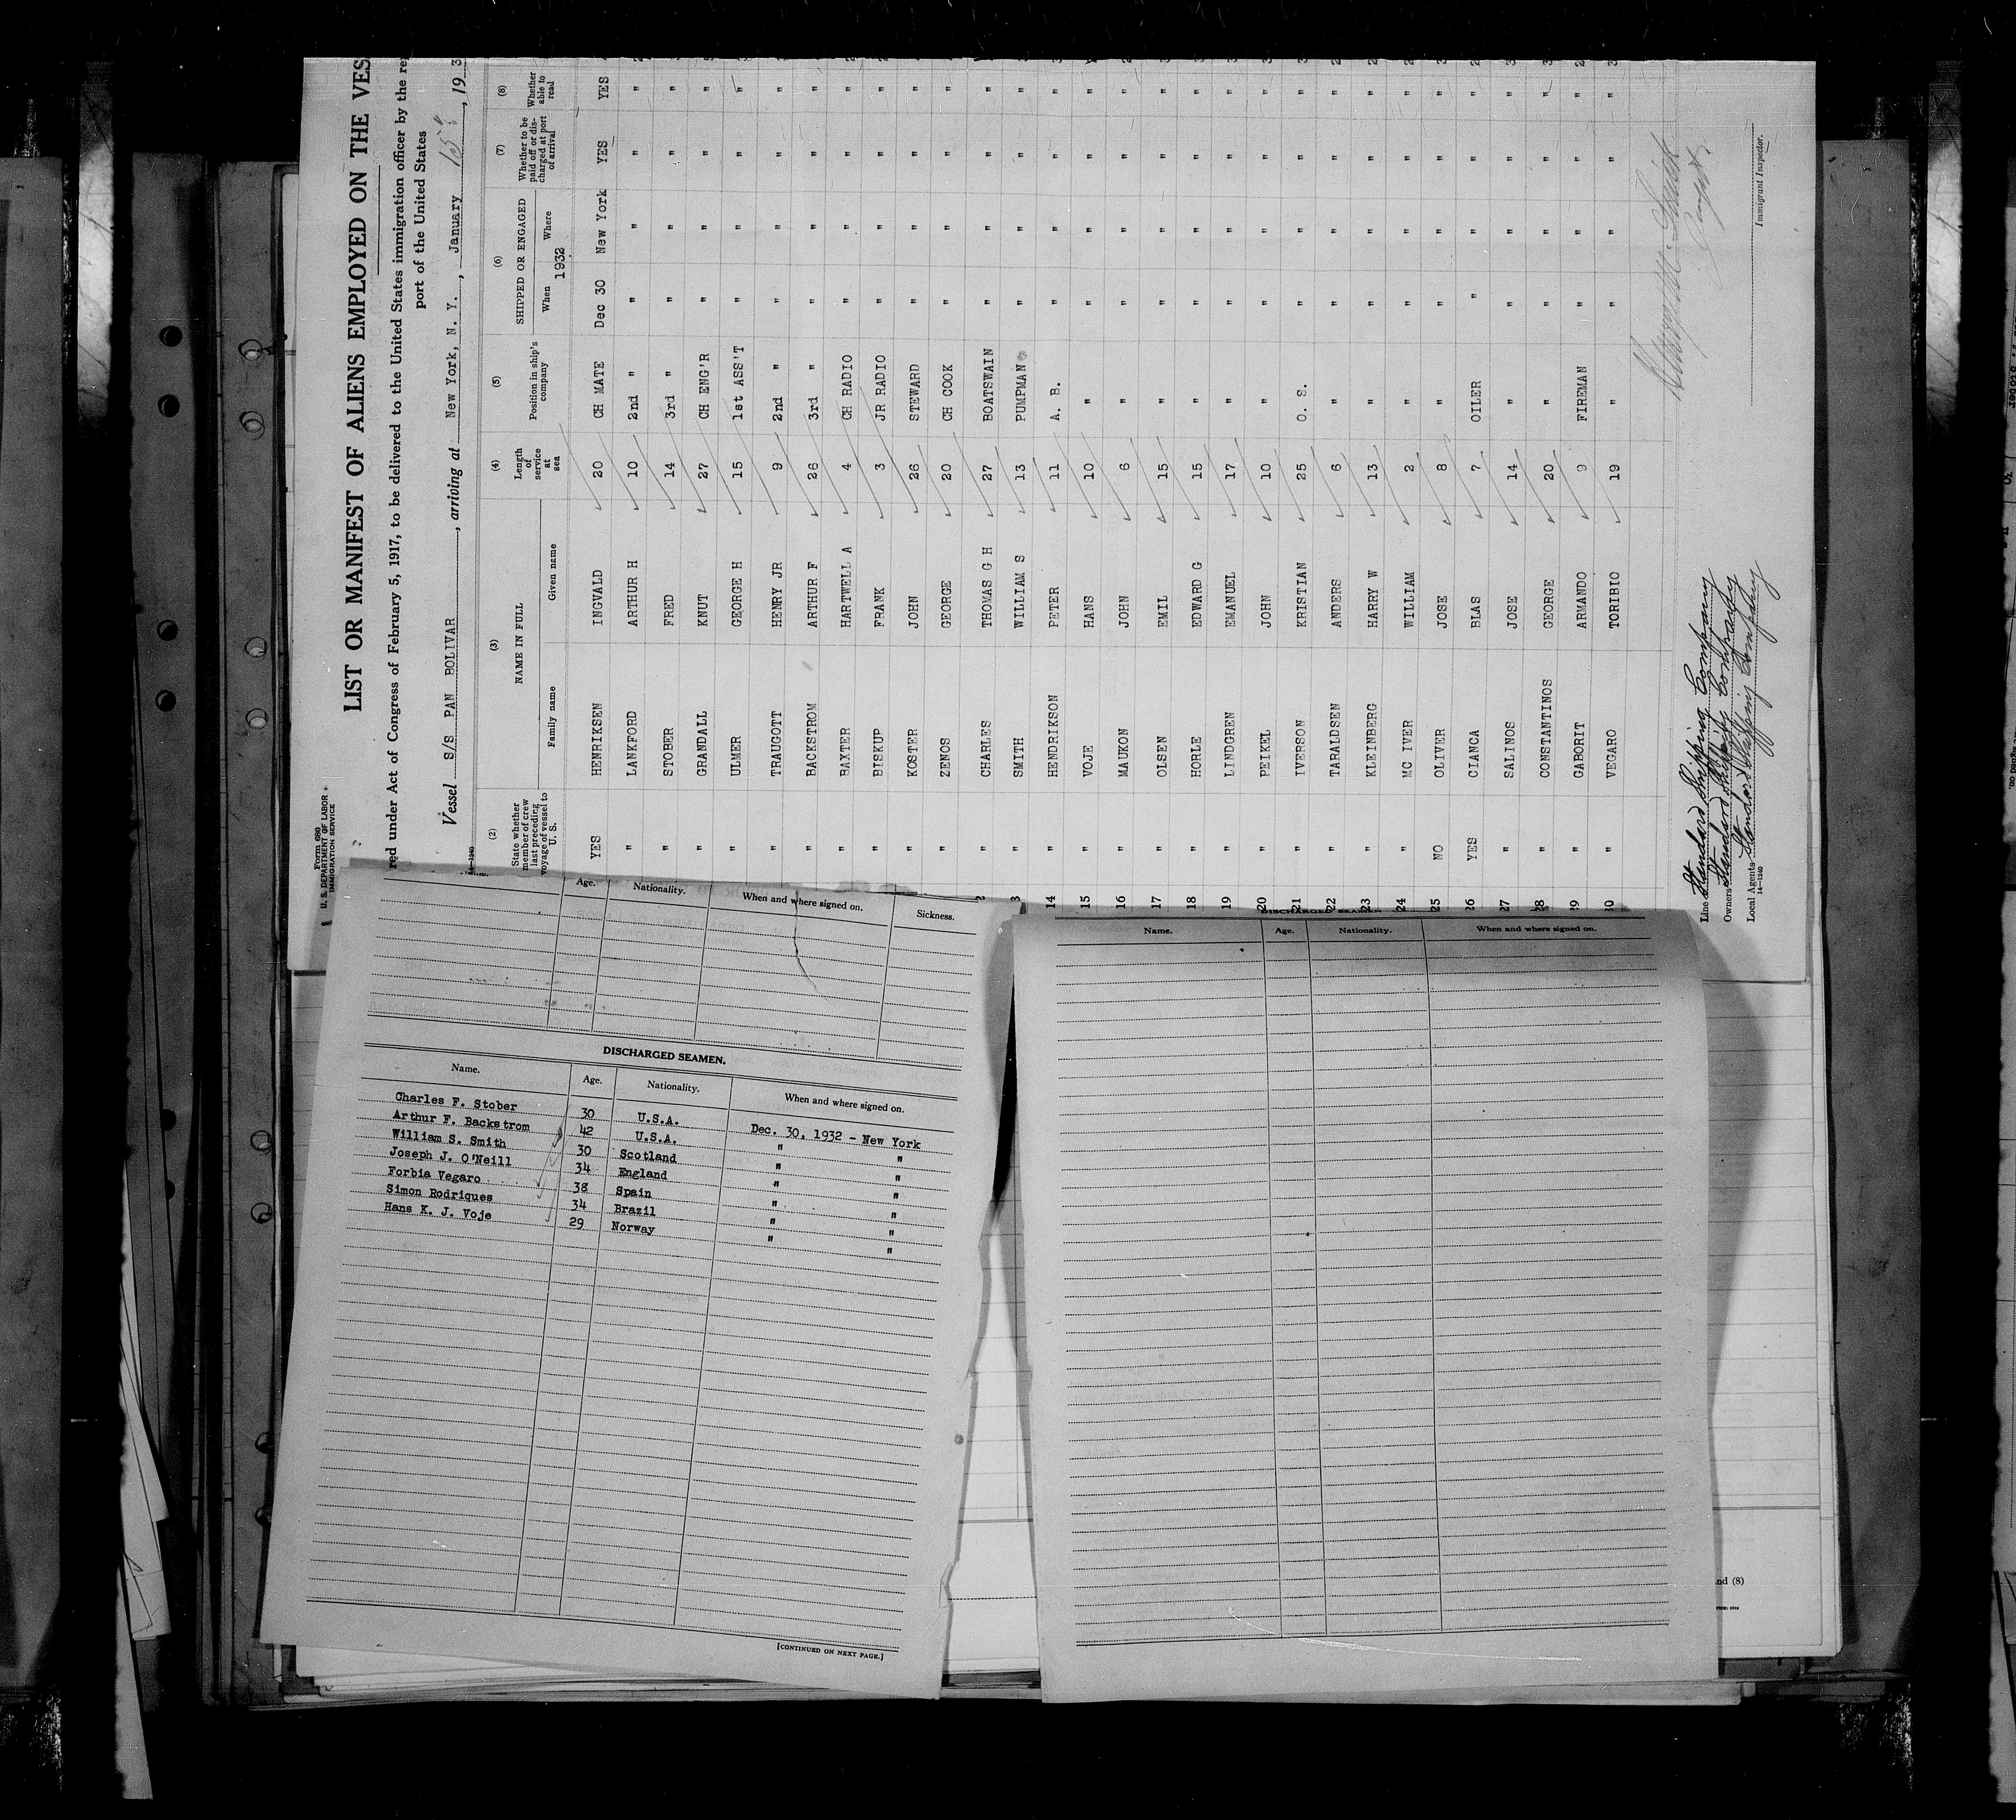 Form 680
U. S. DEPARTMENT OF LABOR
IMMIGRATION SERVICE
LIST OR MANIFEST OF ALIENS EMPLOYED ON THE VES
red under Act of Congress of February 5, 1917, to be delivered to the United States immigration officer by the re
port of the United States
Vessel S/S PAN BOLIVAR, arriving at New York, N. Y., January 15, 193
14—1240
(2) (3) (4) (5) (6) (7) (8)
State whether member of crew last preceding voyage of vessel to U. S. NAME IN FULL Family name Given name Length of service at sea Position in ship's company SHIPPED OR ENGAGED When 1932 Where Whether to be paid off or discharged at port of arrival Whether able to read
YES HENRIKSEN INGVALD 20 CH MATE Dec 30 New York YES YES
" LANKFORD ARTHUR H 10 2nd " " " " "
" STOBER FRED 14 3rd " " " " "
" GRANDALL KNUT 27 CH ENG'R " " " "
" ULMER GEORGE H 15 1st ASS'T " " " "
" TRAUGOTT HENRY JR 9 2nd " " " " "
" BACKSTROM ARTHUR F 26 3rd " " " " "
" BAXTER HARTWELL A 4 CH RADIO " " " "
" BISKUP FRANK 3 JR RADIO " " " "
" KOSTER JOHN 26 STEWARD " " " "
" ZENOS GEORGE 20 CH COOK " " " "
2 " CHARLES THOMAS G H 27 BOATSWAIN " " " "
3 " SMITH WILLIAM S 13 PUMPMAN " " " "
14 " HENDRIKSON PETER 11 A. B. " " " "
15 " VOJE HANS 10 " " " " "
16 " MAUKON JOHN 6 " " " " "
17 " OLSEN EMIL 15 " " " " "
18 " HORLE EDWARD G 15 " " " " "
19 " LINDGREN EMANUEL 17 " " " " "
20 " PEIKEL JOHN 10 " " " " "
21 " IVERSON KRISTIAN 25 O. S. " " " "
22 " TARALDSEN ANDERS 6 " " " " "
23 " KLEINBERG HARRY W 13 " " " " "
24 " MC IVER WILLIAM 2 " " " " "
25 NO OLIVER JOSE 8 " " " " "
26 YES CIANCA BLAS 7 OILER " " " "
27 " SALINOS JOSE 14 " " " " "
28 " CONSTANTINOS GEORGE 20 " " " " "
29 " GABORIT ARMANDO 9 FIREMAN " " " "
30 " VEGARO TORIBIO 19 " " " " "
Line Standard Shipping Company
Owners Standard Shipping Company
Local Agents Standard Shipping Company
14—1240
Immigrant Inspector.
Age. Nationality. When and where signed on. Sickness.
DISCHARGED SEAMEN.
Name. Age. Nationality. When and where signed on.
Charles F. Stober 30 U.S.A. Dec. 30, 1932 - New York
Arthur F. Backstrom 42 U.S.A. " "
William S. Smith 30 Scotland " "
Joseph J. O'Neill 34 England " "
Forbia Vegaro 38 Spain " "
Simon Rodriques 34 Brazil " "
Hans K. J. Voje 29 Norway " "
[CONTINUED ON NEXT PAGE.]
DISCHARGED SEAMEN.
Name. Age. Nationality. When and where signed on.
nd (8)